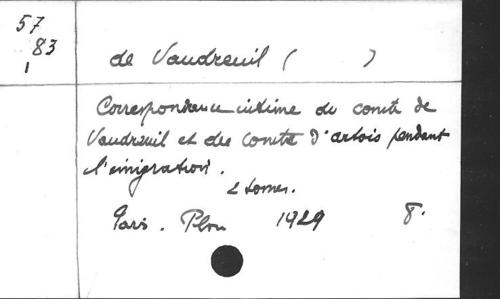 57
83
1
de Vaudreuil ( )
Correspondance intime du comte de
Vaudreuil et du Comte d'artois pendant
l'émigration.
2 tomes.
Paris. Plon 1929 8.